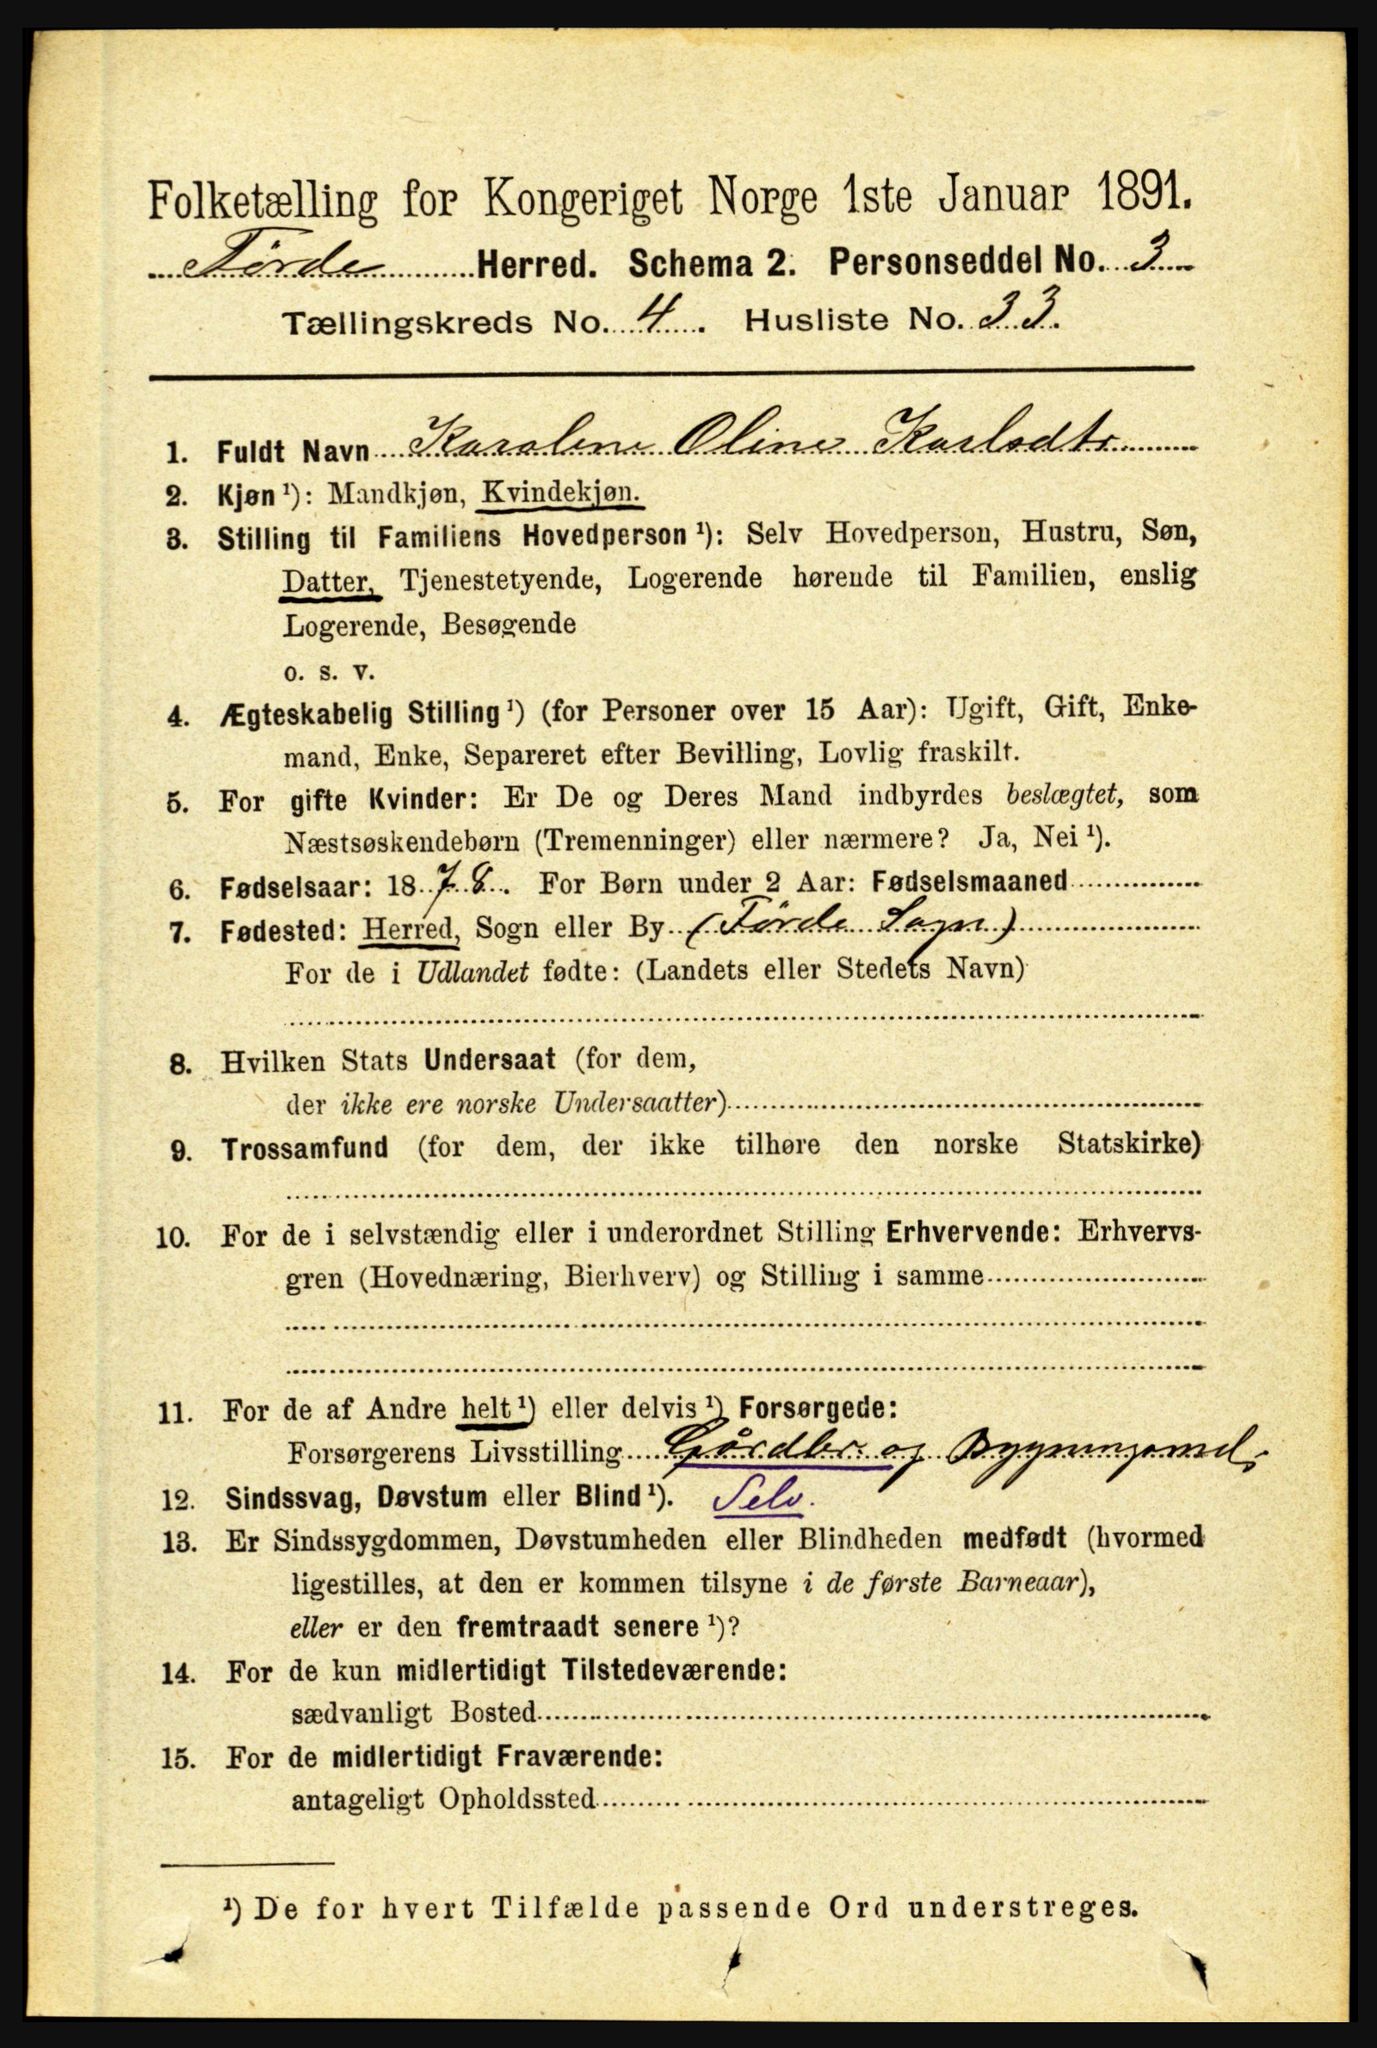 Folketælling for Kongeriget Norge 1ste Januar 1891.
Førde Herred. Schema 2. Personseddel No. 3
Tællingskreds No. 4. Husliste No. 33.
1. Fuldt Navn Karolene Oline Karlsdtr
2. Kjøn ¹): Mandkjøn, Kvindekjøn.
3. Stilling til Familiens Hovedperson ¹): Selv Hovedperson, Hustru, Søn,
Datter, Tjenestetyende, Logerende hørende til Familien, enslig
Logerende, Besøgende
o. s. v.
4. Ægteskabelig Stilling ¹) (for Personer over 15 Aar): Ugift, Gift, Enke-
mand, Enke, Separeret efter Bevilling, Lovlig fraskilt.
5. For gifte Kvinder: Er De og Deres Mand indbyrdes beslægtet, som
Næstsøskendebørn (Tremenninger) eller nærmere? Ja, Nei ¹).
6. Fødselsaar: 1878. For Børn under 2 Aar: Fødselsmaaned
7. Fødested: Herred, Sogn eller By (Førde Sogn)
For de i Udlandet fødte: (Landets eller Stedets Navn)
8. Hvilken Stats Undersaat (for dem,
der ikke ere norske Undersaatter)
9. Trossamfund (for dem, der ikke tilhøre den norske Statskirke)
10. For de i selvstændig eller i underordnet Stilling Erhvervende: Erhvervs-
gren (Hovednæring, Bierhverv) og Stilling i samme
11. For de af Andre helt ¹) eller delvis ¹) Forsørgede:
Forsørgerens Livsstilling Gårdbr og Bygningsmd.
12. Sindssvag, Døvstum eller Blind ¹). Selv.
13. Er Sindssygdommen, Døvstumheden eller Blindheden medfødt (hvormed
ligestilles, at den er kommen tilsyne i de første Barneaar),
eller er den fremtraadt senere ¹)?
14. For de kun midlertidigt Tilstedeværende:
sædvanligt Bosted
15. For de midlertidigt Fraværende:
antageligt Opholdssted
¹) De for hvert Tilfælde passende Ord understreges.